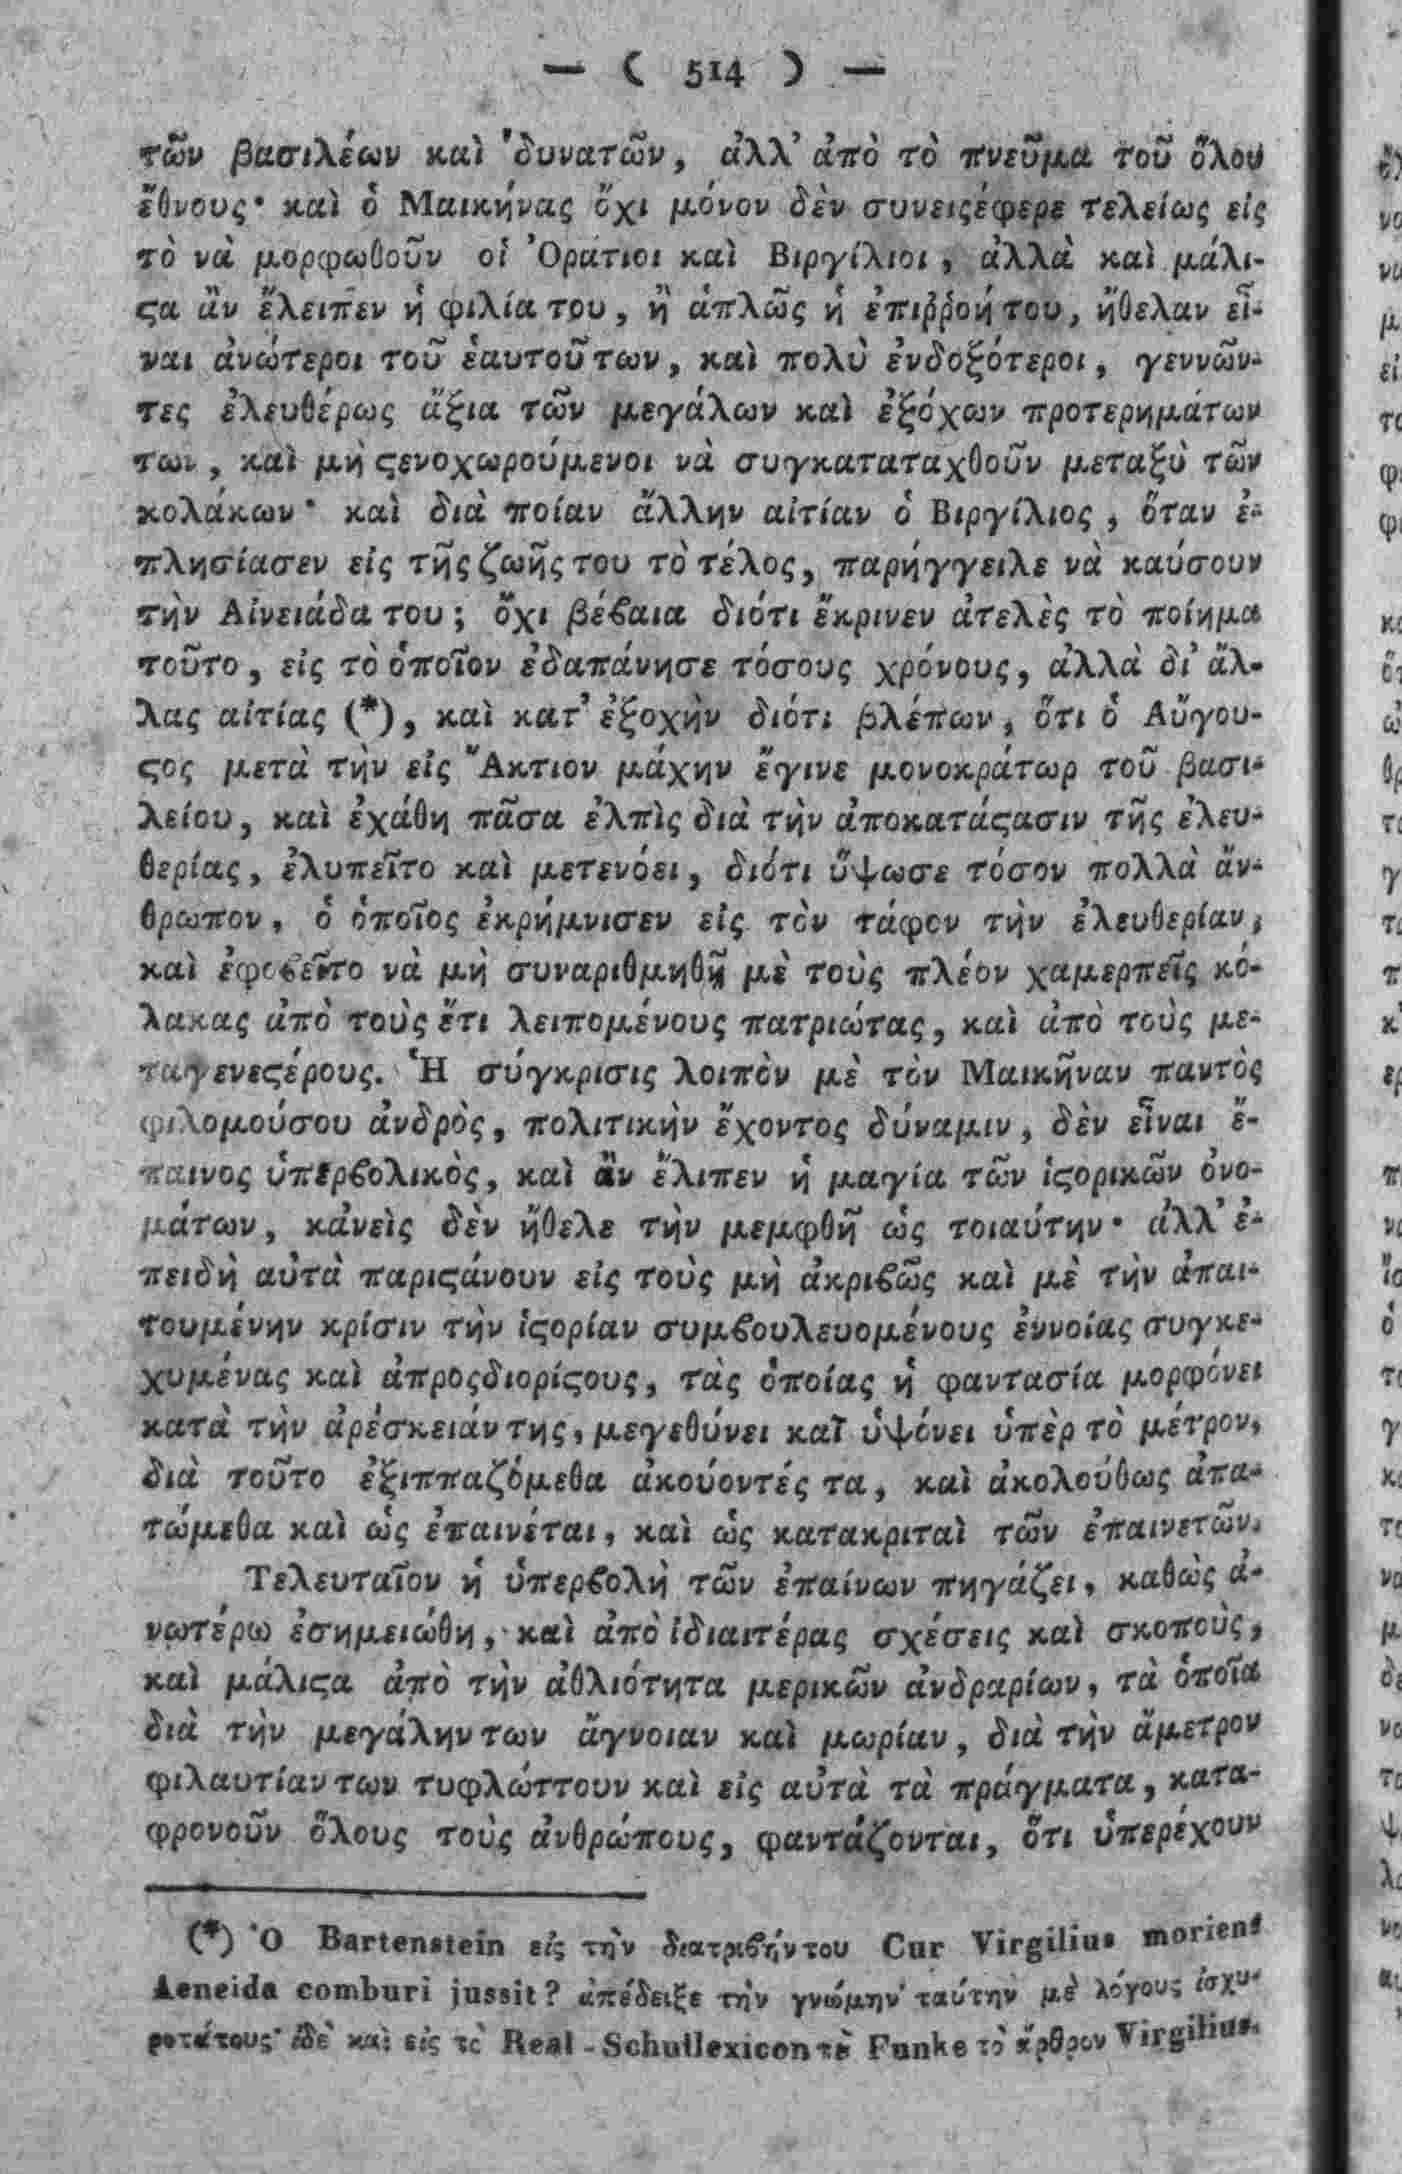 — ( 514 ) —
τῶν βασιλέων καὶ δυνατῶν, ἀλλ' ἀπὸ τὸ πνεῦμα τοῦ ὅλου
ἔθνους· καὶ ὁ Μαικήνας ὄχι μόνον δὲν συνειςέφερε τελείως εἰς
τὸ νὰ μορφωθοῦν οἱ Ὁράτιοι καὶ Βιργίλιοι, ἀλλὰ καὶ μάλι-
ϛα ἂν ἔλειπεν ἡ φιλία του, ἢ ἁπλῶς ἡ ἐπιῤῥοή του, ἤθελαν εἶ-
ναι ἀνώτεροι τοῦ ἑαυτοῦ των, καὶ πολὺ ἐνδοξότεροι, γεννῶν-
τες ἐλευθέρως ἄξια τῶν μεγάλων καὶ ἐξόχων προτερημάτων
των, καὶ μὴ ϛενοχωρούμενοι νὰ συγκαταταχθοῦν μεταξὺ τῶν
κολάκων· καὶ διὰ ποίαν ἄλλην αἰτίαν ὁ Βιργίλιος, ὅταν ἐ-
πλησίασεν εἰς τῆς ζωῆς του τὸ τέλος, παρήγγειλε νὰ καύσουν
τὴν Αἰνειάδα του; ὄχι βέβαια διότι ἔκρινεν ἀτελὲς τὸ ποίημα
τοῦτο, εἰς τὸ ὁποῖον ἐδαπάνησε τόσους χρόνους, ἀλλὰ δι' ἄλ-
λας αἰτίας (*), καὶ κατ' ἐξοχὴν διότι βλέπων, ὅτι ὁ Αὔγου-
ϛος μετὰ τὴν εἰς Ἄκτιον μάχην ἔγινε μονοκράτωρ τοῦ βασι-
λείου, καὶ ἐχάθη πᾶσα ἐλπὶς διὰ τὴν ἀποκατάϛασιν τῆς ἐλευ-
θερίας, ἐλυπεῖτο καὶ μετενόει, διότι ὕψωσε τόσον πολλὰ ἄν-
θρωπον, ὁ ὁποῖος ἐκρήμνισεν εἰς τὸν τάφον τὴν ἐλευθερίαν,
καὶ ἐφοβεῖτο νὰ μὴ συναριθμηθῇ μὲ τοὺς πλέον χαμερπεῖς κό-
λακας ἀπὸ τοὺς ἔτι λειπομένους πατριώτας, καὶ ἀπὸ τοὺς με-
ταγενεϛέρους. Ἡ σύγκρισις λοιπὸν μὲ τὸν Μαικῆναν παντὸς
φιλομούσου ἀνδρὸς, πολιτικὴν ἔχοντος δύναμιν, δὲν εἶναι ἔ-
παινος ὑπερβολικὸς, καὶ ἂν ἔλιπεν ἡ μαγία τῶν ἱϛορικῶν ὀνο-
μάτων, κἀνεὶς δὲν ἤθελε τὴν μεμφθῆ ὡς τοιαύτην· ἀλλ' ἐ-
πειδὴ αὐτὰ παριϛάνουν εἰς τοὺς μὴ ἀκριβῶς καὶ μὲ τὴν ἀπαι-
τουμένην κρίσιν τὴν ἱϛορίαν συμβουλευομένους ἐννοίας συγκε-
χυμένας καὶ ἀπροςδιορίϛους, τὰς ὁποίας ἡ φαντασία μορφόνει
κατὰ τὴν ἀρέσκειάν της, μεγεθύνει καὶ ὑψόνει ὑπὲρ τὸ μέτρον,
διὰ τοῦτο ἐξιππαζόμεθα ἀκούοντές τα, καὶ ἀκολούθως ἀπα-
τώμεθα καὶ ὡς ἐπαινέται, καὶ ὡς κατακριταὶ τῶν ἐπαινετῶν.
Τελευταῖον ἡ ὑπερβολὴ τῶν ἐπαίνων πηγάζει, καθὼς ἀ-
νωτέρω ἐσημειώθη, καὶ ἀπὸ ἰδιαιτέρας σχέσεις καὶ σκοποὺς,
καὶ μάλιϛα ἀπὸ τὴν ἀθλιότητα μερικῶν ἀνδραρίων, τὰ ὁποῖα
διὰ τὴν μεγάλην των ἄγνοιαν καὶ μωρίαν, διὰ τὴν ἄμετρον
φιλαυτίαν των τυφλώττουν καὶ εἰς αὐτὰ τὰ πράγματα, κατα-
φρονοῦν ὅλους τοὺς ἀνθρώπους, φαντάζονται, ὅτι ὑπερέχουν
(*) Ὁ Bartenstein εἰς τὴν διατριβήν του Cur Virgilius moriens
Aeneida comburi jussit? ἀπέδειξε τὴν γνώμην ταύτην μὲ λόγους ἰσχυ-
ροτάτους· ἰδὲ καὶ εἰς τὸ Real-Schullexicon τȣ͂ Funke τὸ ἄρθρον Virgilius.